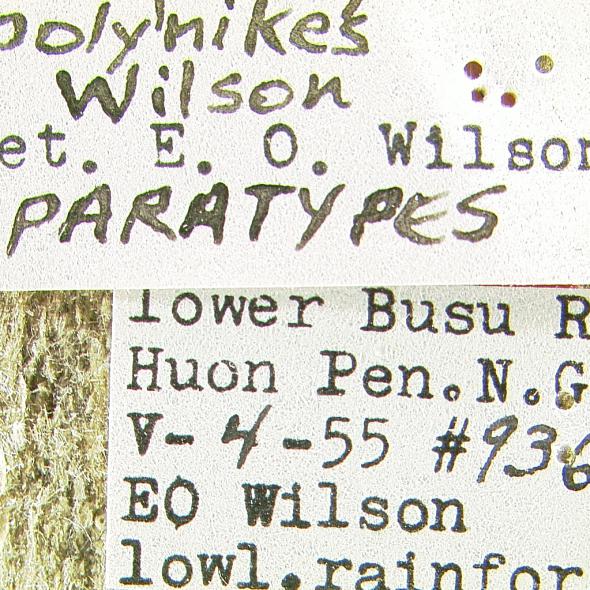 polynikes
Wilson
et. E. O. Wilson
PARATYPES
lower Busu R
Huon Pen.N.G
V-4-55 #936
EO Wilson
lowl.rainfor